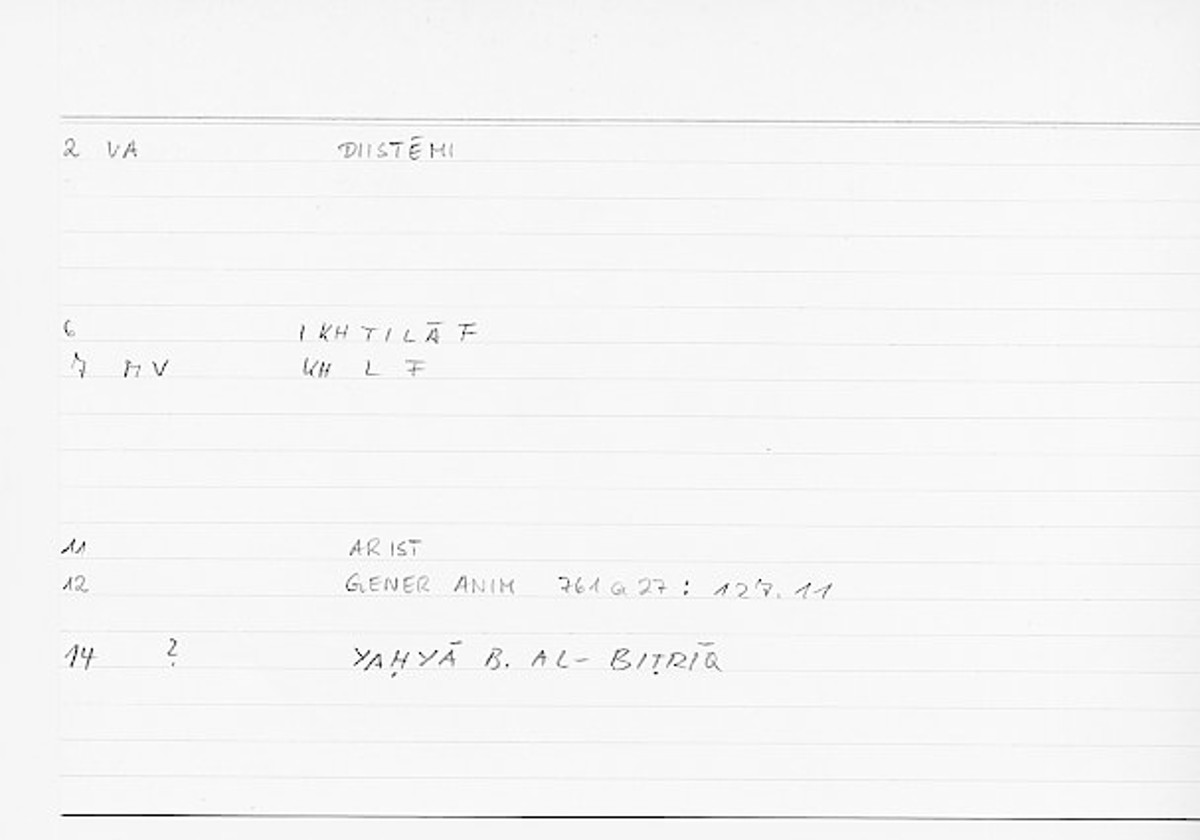 2 VA DIISTĒMI
6 IKHTILĀF
7 MV KH L F
11 ARIST
12 GENER ANIM 761a27: 127.11
14 ? YAḤYĀ B. AL-BIṬRĪQ